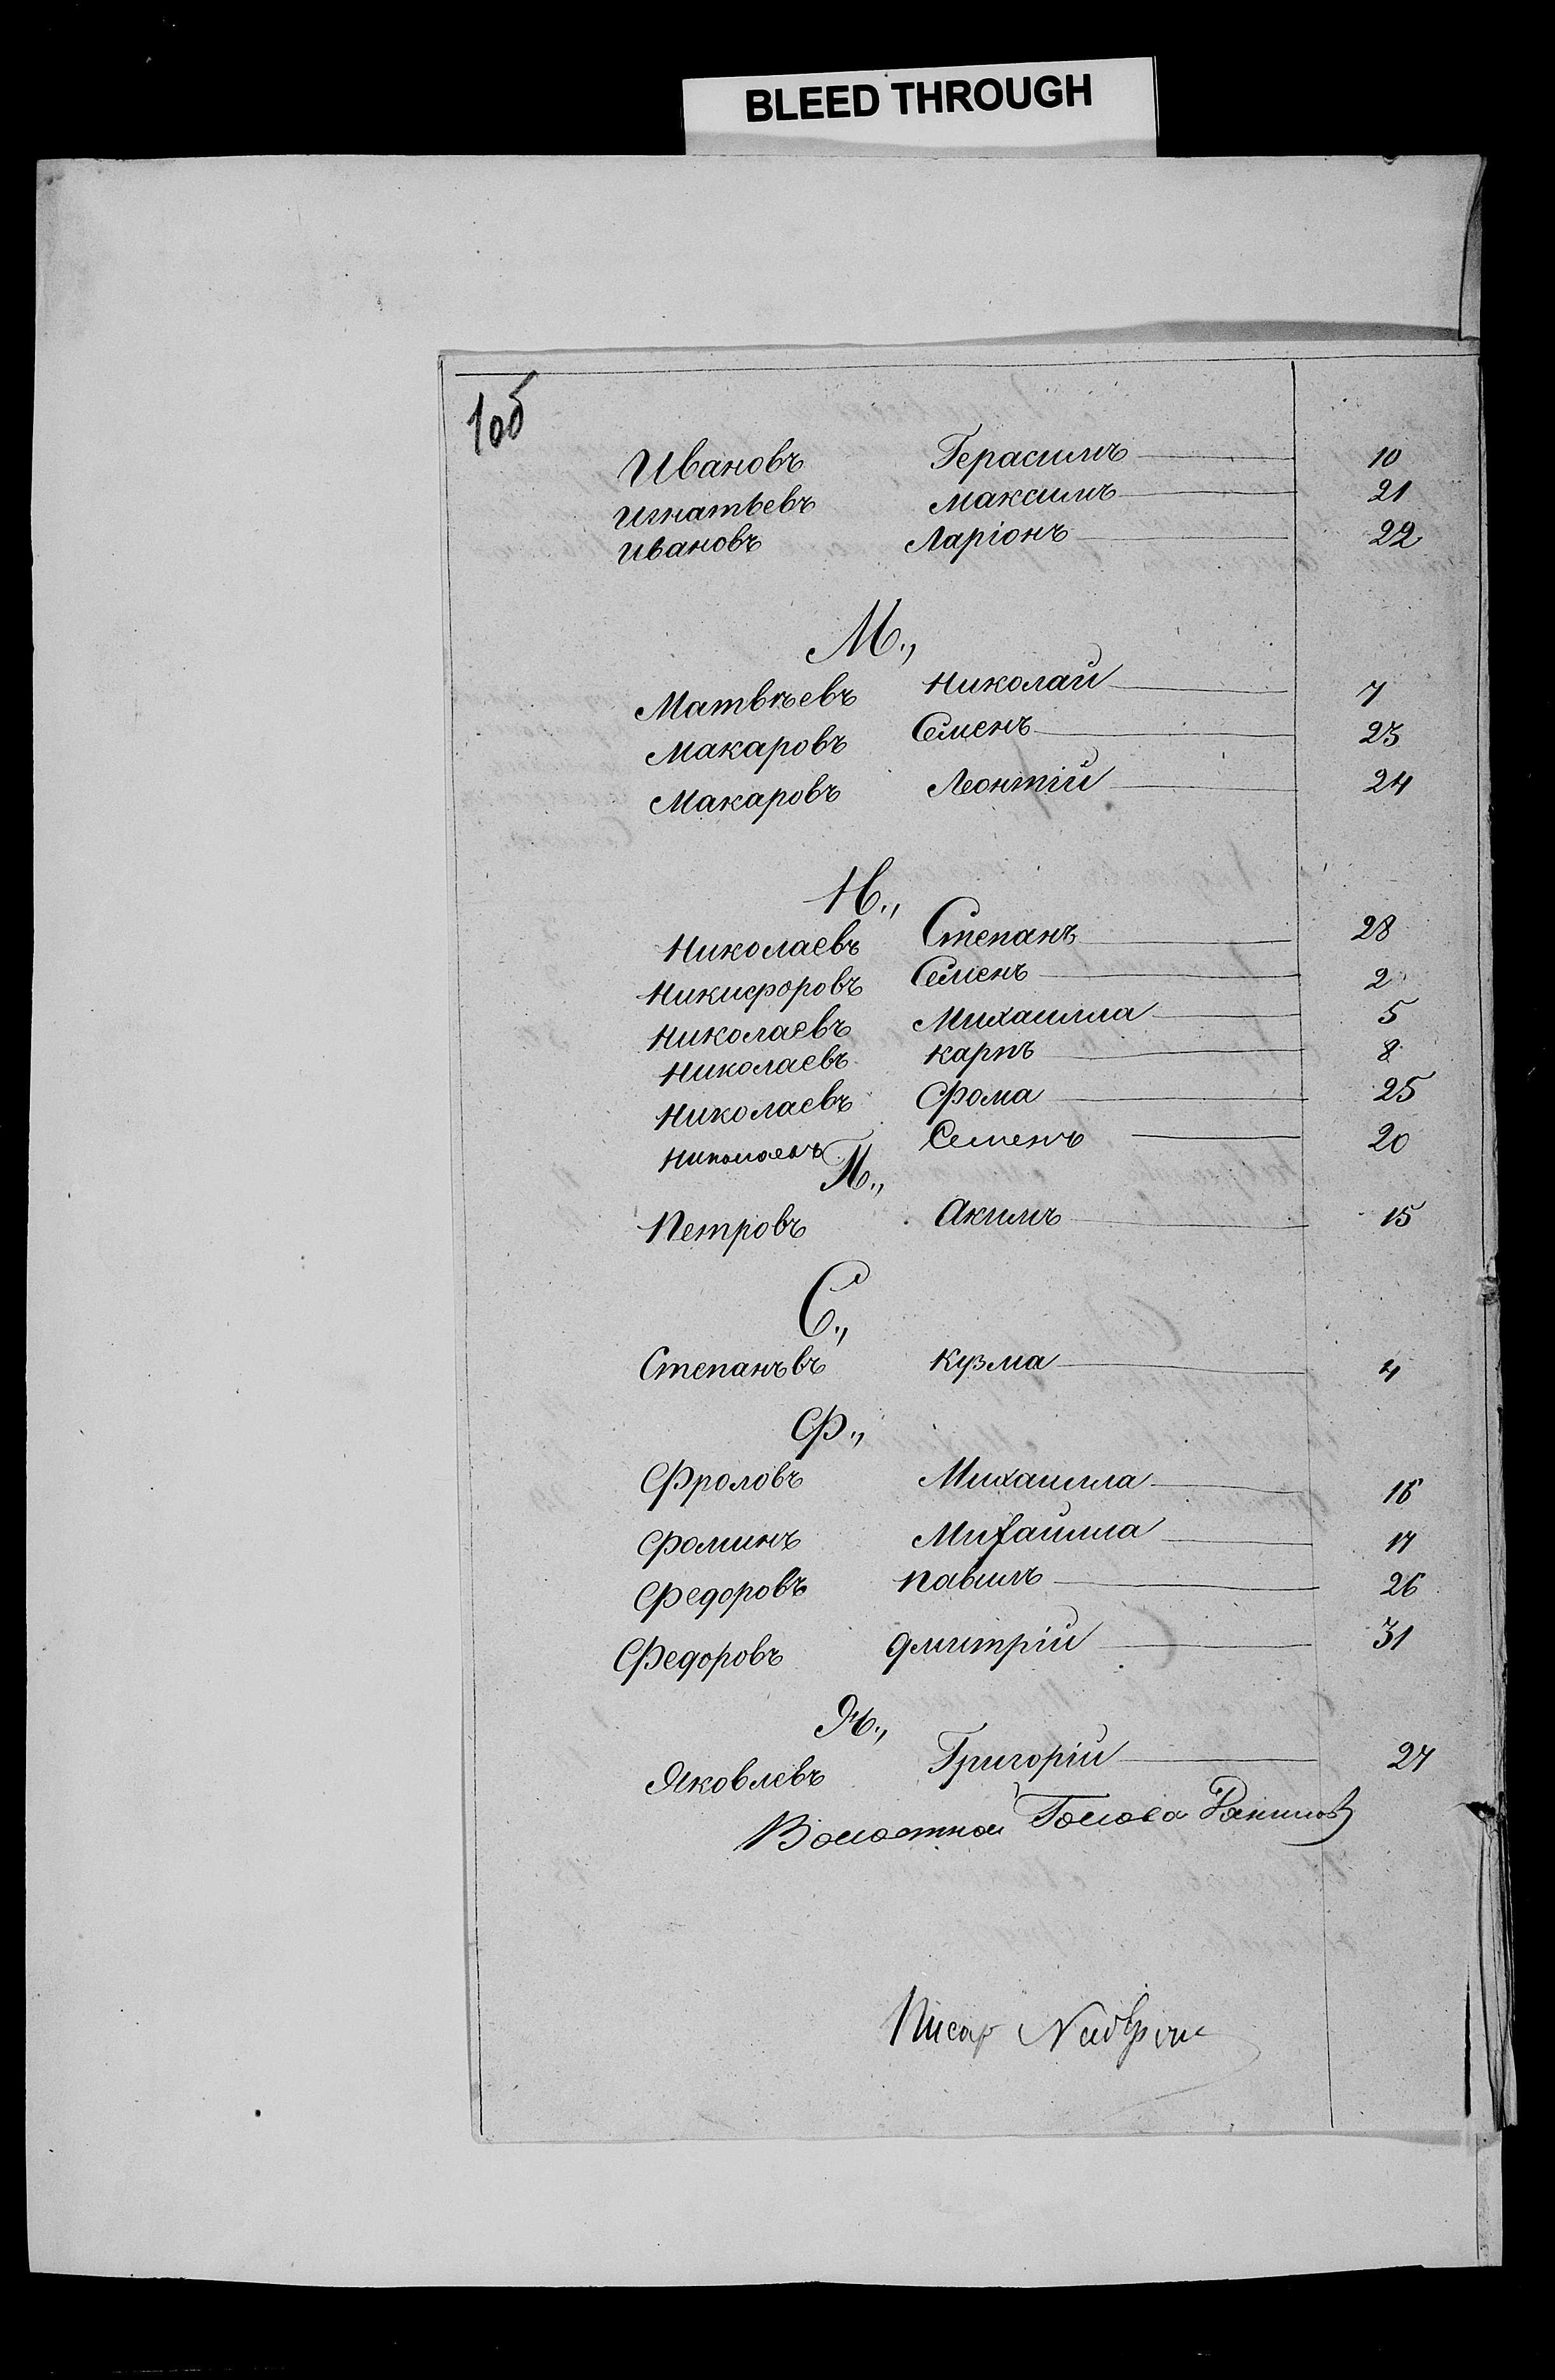 BLEED THROUGH
Ивановъ Герасимъ 10
Игнатьевъ Максимъ 21
Ивановъ Ларіонъ 22
М.,
Матвѣевъ Николай 7
Макаровъ Семенъ 23
Макаровъ Леонтій 24
Н.,
Николаевъ Степанъ 28
Никифоровъ Семенъ 2
Николаевъ Михаилла 5
Николаевъ Карпъ 8
Николаевъ Фома 25
Николаевъ Семенъ 20
П.,
Петровъ Акимъ 15
С.,
Степанъвъ Кузма 4
Ф.,
Фроловъ Михаилла 16
Фоминъ Михаилла 17
Федоровъ Павилъ 26
Федоровъ Дмитрій 31
Я.,
Яковлевъ Григорій 27
Волостной Голова
Писар